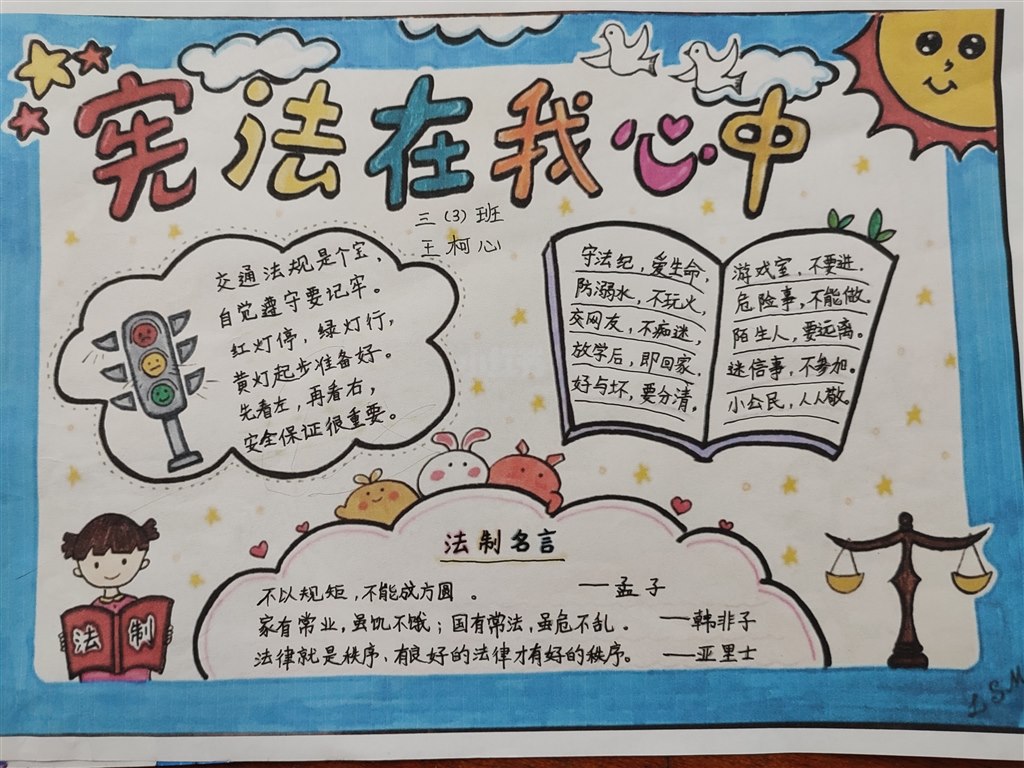 宪法在我心中
三（3）班
王柯心
交通法规是个宝、
自觉遵守要记牢。
红灯停，绿灯行，
黄灯起步准备好。
先看左，再看右，
安全保证很重要。
守法纪，爱生命，
防溺水，不玩火，
交网友，不痴迷，
放学后，即回家，
好与坏，要分清，
游戏室，不要进．
危险事，不能做。
陌生人，要远离。
迷信事，不参加。
小公民，人人敬。
法制名言
不以规矩，不能成方圆 。 —孟子
家有常业，虽饥不饿；国有常法，虽危不乱。 —韩非子
法律就是秩序，有良好的法律才有好的秩序。 —亚里士
法制
LSM